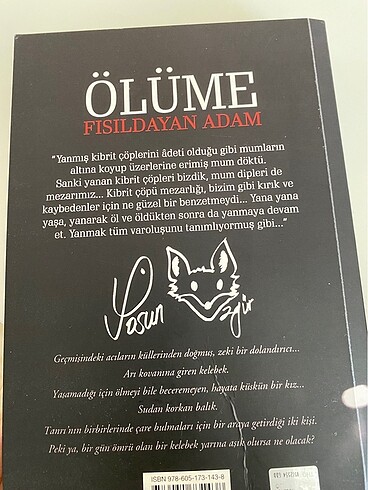 ÖLÜME
FISILDAYAN ADAM
"Yanmış kibrit çöplerini âdeti olduğu gibi mumların
altına koyup üzerlerine erimiş mum döktü.
Sanki yanan kibrit çöpleri bizdik, mum dipleri de
mezarımız... Kibrit çöpü mezarlığı, bizim gibi kırık ve
kaybedenler için ne güzel bir benzetmeydi... Yana yana
yaşa, yanarak öl ve öldükten sonra da yanmaya devam
et. Yanmak tüm varoluşunu tanımlıyormuş gibi..."
Geçmişindeki acıların küllerinden doğmuş, zeki bir dolandırıcı...
Arı kovanına giren kelebek.
Yaşamadığı için ölmeyi bile beceremeyen, hayata küskün bir kız...
Sudan korkan balık.
Tanrı'nın birbirlerinde çare bulmaları için bir araya getirdiği iki kişi.
Peki ya, bir gün ömrü olan bir kelebek yarına aşık olursa ne olacak?
ISBN 978-605-173-143-8